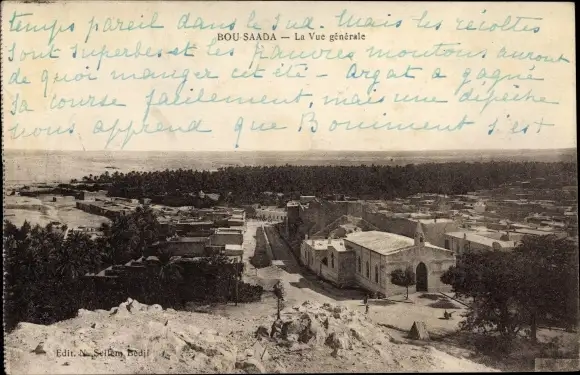 temps pareil dans le Sud. Mais les récoltes
BOU-SAADA — La Vue générale
sont superbes et les pauvres moutons auront
de quoi manger cet été - Argat a gagné
sa course facilement, mais une dépêche
nous apprend que Boniment s'est
Edit. N. Sellem Bédji